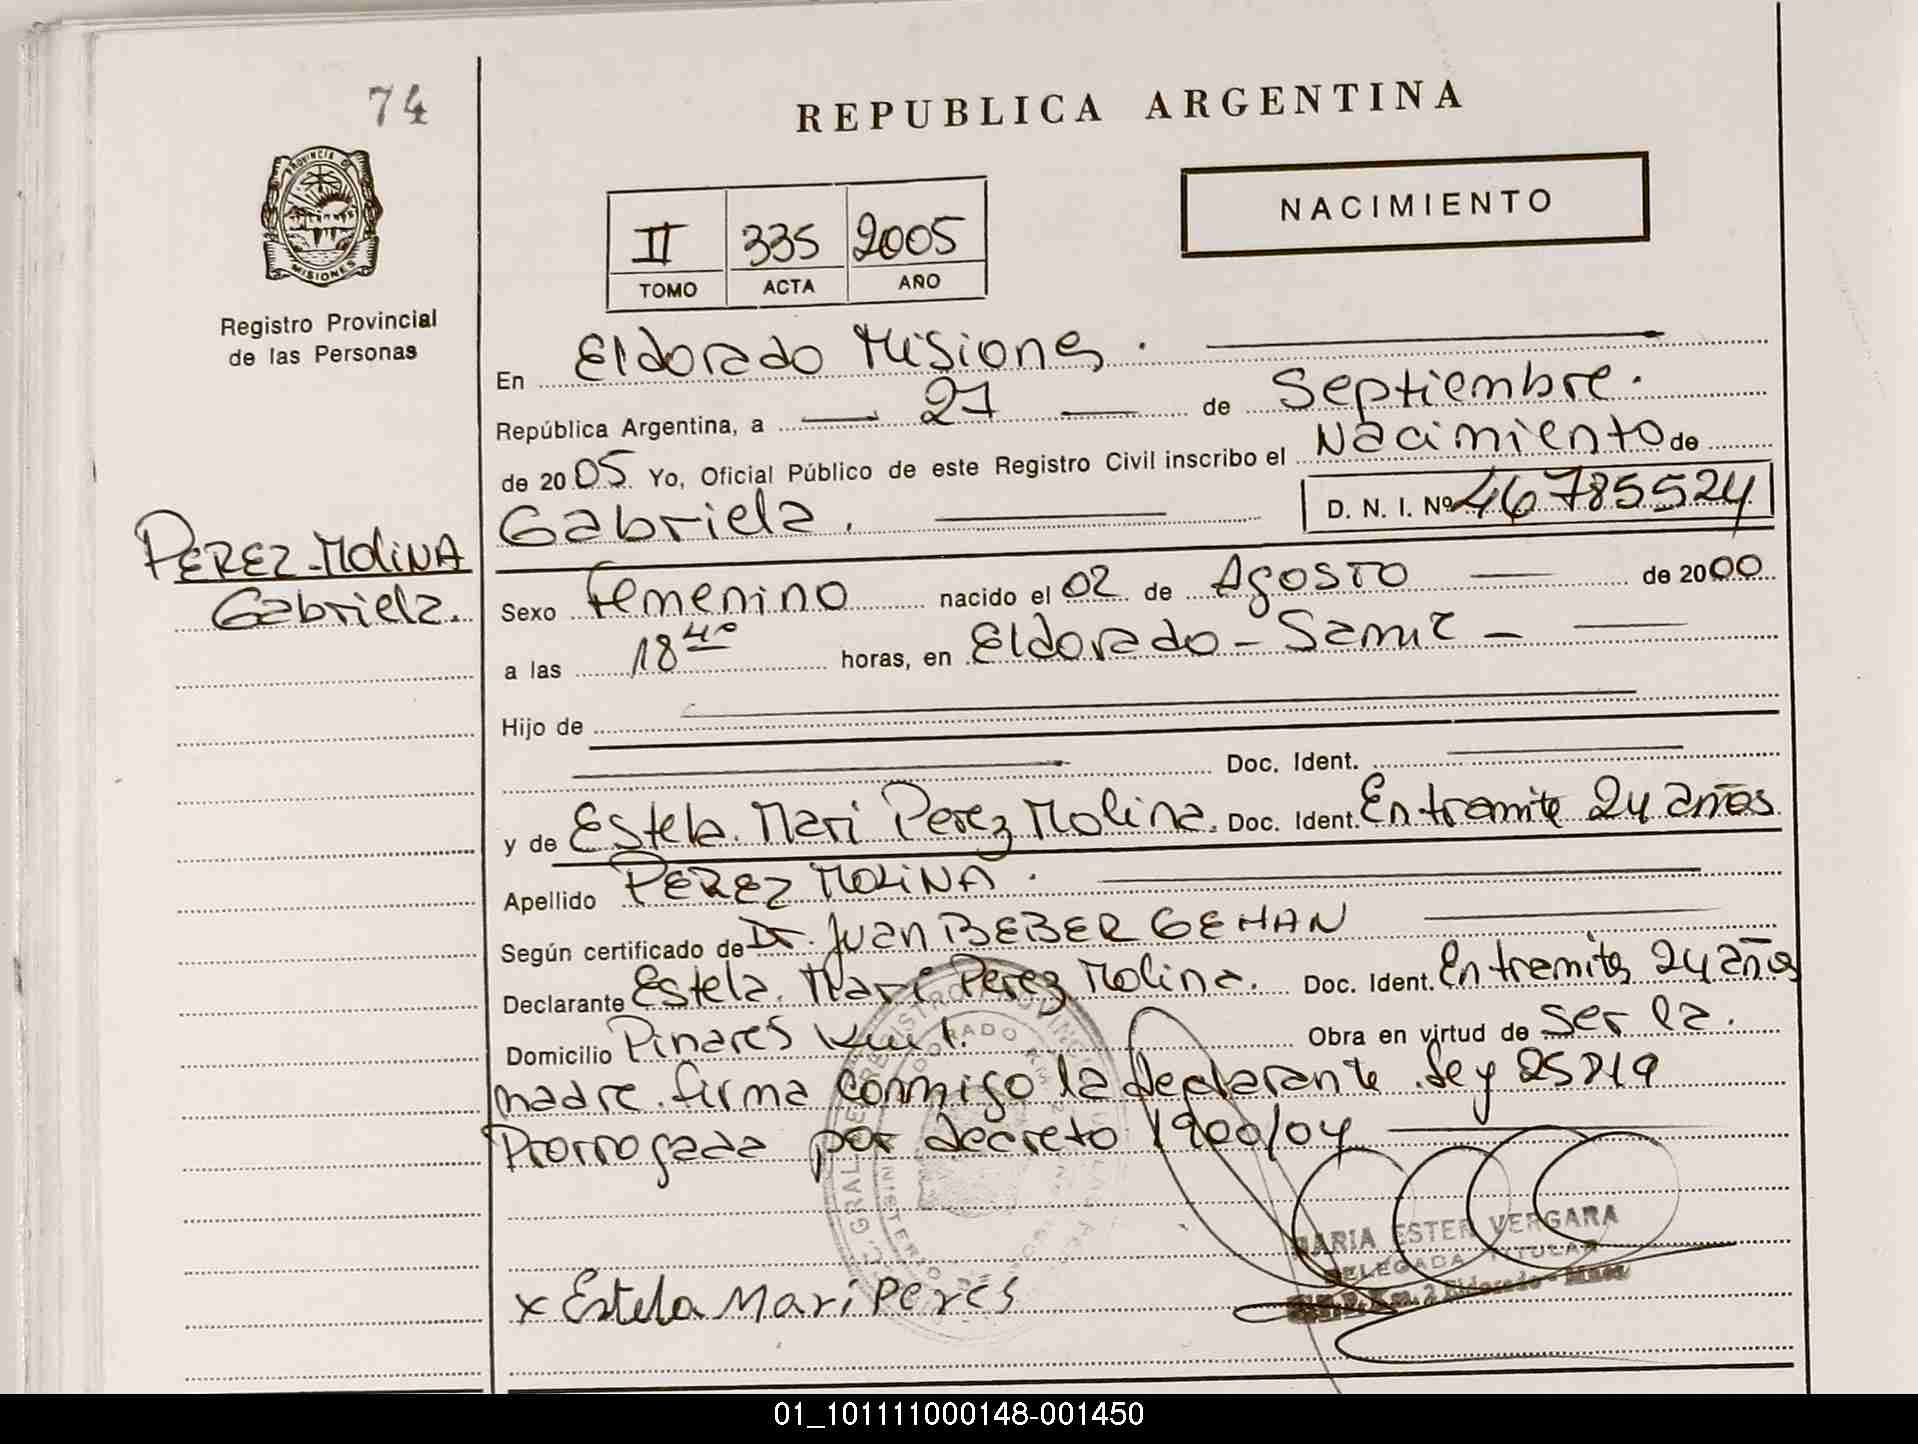 74
REPUBLICA ARGENTINA
PROVINCIA DE
MISIONES
NACIMIENTO
II 335 2005
TOMO ACTA AÑO
Registro Provincial
de las Personas
En Eldorado Misiones.
República Argentina, a 27 de Septiembre.
de 2005 Yo, Oficial Público de este Registro Civil inscribo el Nacimiento de
Gabriela. D. N. I. Nº 46785524
PEREZ-MOLINA
Gabriela.
Sexo Femenino nacido el 02 de Agosto de 2000
a las 18 40 horas, en Eldorado - Samic -
Hijo de
Doc. Ident.
y de Estela Mari Perez Molina. Doc. Ident. En tramite 24 años
Apellido PEREZ MOLINA.
Según certificado de Dr. Juan BEBER GEHAN
Declarante Estela Mari Perez Molina. Doc. Ident. En tramite, 24 años
Domicilio Pinares Obra en virtud de ser la
madre. firma conmigo la declarante. Ley 25819
Prorrogada por decreto 1900/04
MARIA ESTER VERGARA
DELEGADA TITULAR
Km. 2 Eldorado - Mnes
x Estela Mari Peres
01_101111000148-001450